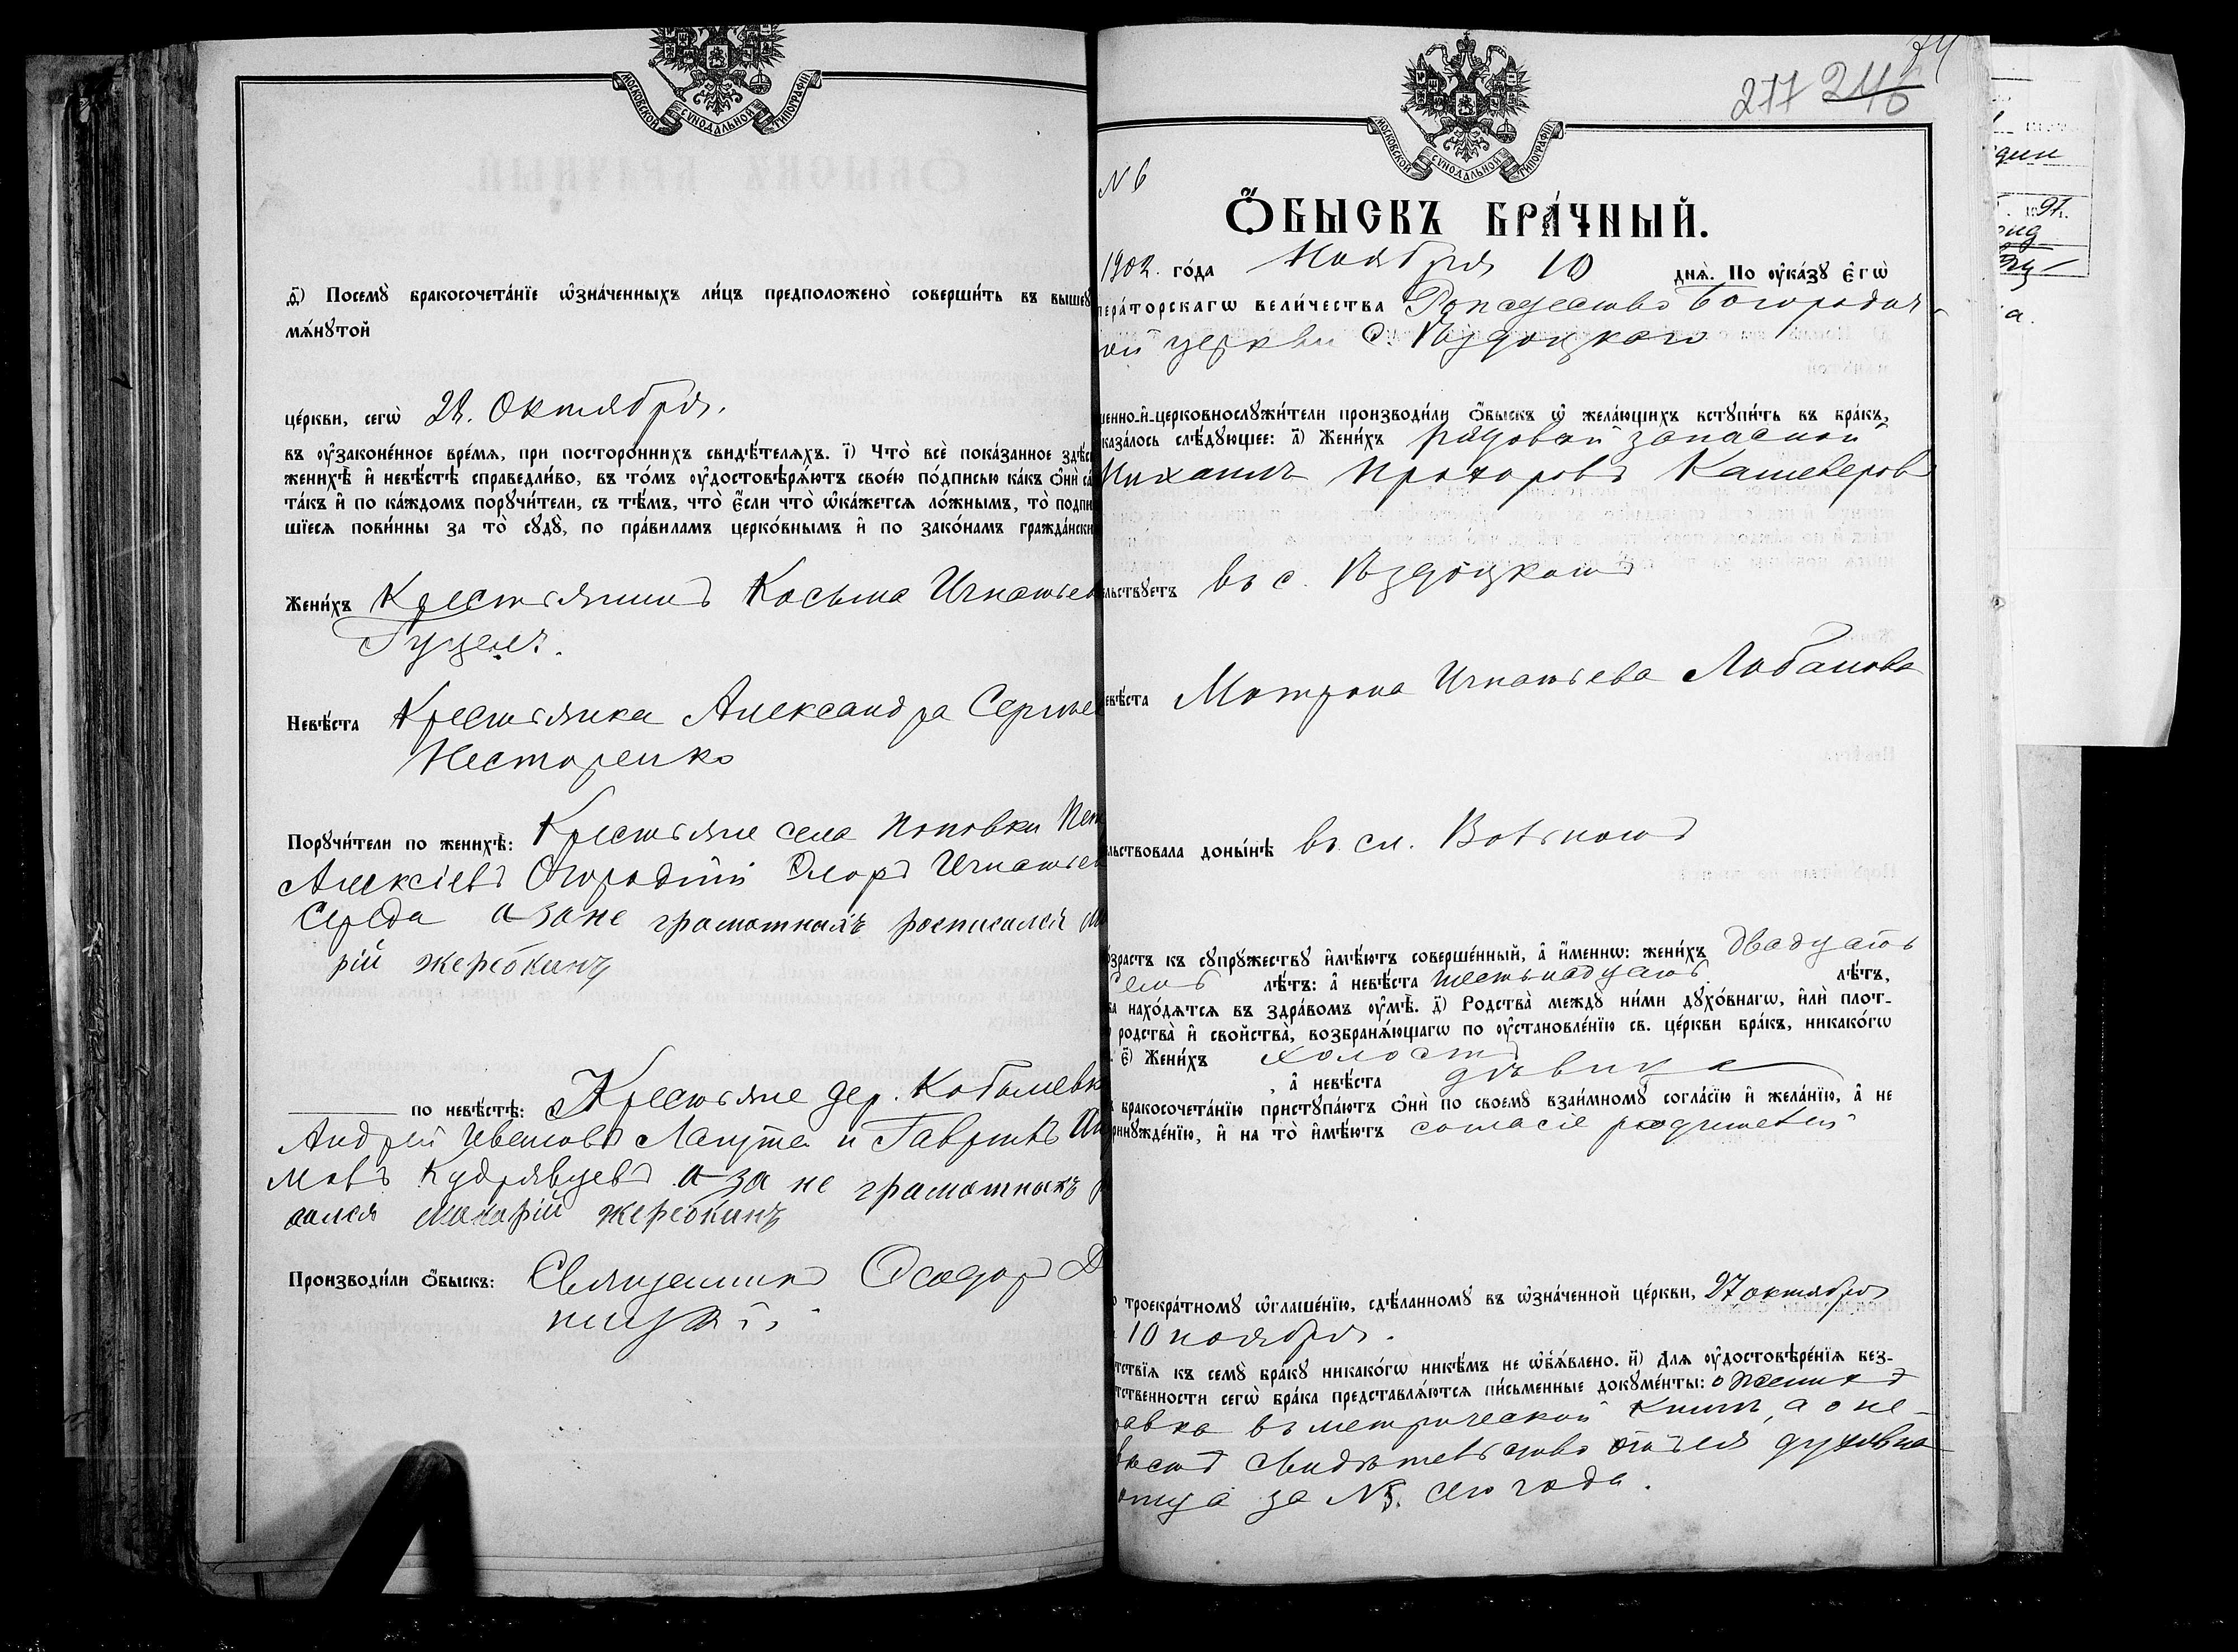 МОСКОВСКОЙ СѴНОДАЛЬНОЙ ТИПОГРАФІИ
д҃) Посемꙋ̀ бракосочета́нїе ѡ҆зна́ченныхъ ли́цъ предположено̀ соверши́ть въ вышеꙋ
мѧ́нꙋтой
це́ркви, сегѡ̀ 28. Октября.
въ ᲂу҆законе́нное вре́мѧ, при посторо́ннихъ свидѣ́телѧхъ. і҃) Что̀ всѐ пока́занное здѣс
женихѣ̀ и҆ невѣ́стѣ справедли́во, въ то́мъ ᲂу҆достовѣрѧ́ютъ свое́ю по́дписью ка́къ ѻ҆нѝ са
та́къ и҆ по ка́ждомъ порꙋчи́тели, съ тѣ́мъ, что̀ є҆́сли что̀ ѡ҆ка́жетсѧ ло́жнымъ, то̀ подпи
шїесѧ пови́нны за то̀ сꙋдꙋ̀, по пра́виламъ церко́внымъ и҆ по зако́намъ гражда́нски
Жени́хъ Крестьянинъ Косьма Игнатьев
Гуцелъ.
Невѣ́ста Крестьянка Александра Сергѣев
Несторенко
Порꙋчи́тели по женихѣ̀: Крестьяне села Поповки Пет
Алексіевъ Огородній Флоръ Игнатьев
Середа а за не грамотныхъ росписался Ма
рій жеребкинъ
по невѣ́стѣ: Крестьяне дер. Кобылевк
Андрей Ивановъ Лапута и Гавріилъ
мовъ Кудрявцевъ а за не грамотныхъ р
сался макарій жеребкинъ
Производи́ли ѻ҆́быскъ: Священникъ Ѳеодоръ
277 246
МОСКОВСКОЙ СѴНОДАЛЬНОЙ ТИПОГРАФІИ
N 6
Ѻ҆́БЫСКЪ БРА́ЧНЫЙ.
1902. го́да Ноября 10 днѧ̀. По ᲂу҆ка́зꙋ є҆гѡ̀
пера́торскагѡ вели́чества Рождество Богородич-
ой церкви с.
щенно-и҆-церковнослꙋжи́тели производи́ли ѻ҆́быскъ ѡ҆ жела́ющихъ встꙋпи́ть въ бра́къ,
каза́лось слѣ́дꙋющее: а҃) Жени́хъ рядовой запасной
Михаилъ Прохоровъ Кашеверовъ
льствꙋетъ въ с.
евѣ́ста Матрона Игнатьева Лобанова
льствовала доны́нѣ въ сл.
о́зрастъ къ сꙋпрꙋ́жествꙋ и҆мѣ́ютъ соверше́нный, а҆ и҆́менно: жени́хъ двадцать
семь лѣ́тъ: а҆ невѣ́ста шестьнадцать лѣ́тъ,
ба нахо́дѧтсѧ въ здра́вомъ ᲂу҆мѣ̀. д҃) Родства̀ междꙋ̀ ни́ми дꙋхо́внагѡ, и҆лѝ плот-
родства̀ и҆ сво́йства̀, возбранѧ́ющагѡ по ᲂу҆становле́нїю св. це́ркви бра́къ, никако́гѡ
є҃) Жени́хъ холостъ
а҆ невѣ́ста дѣвица
бракосочета́нїю пристꙋпа́ютъ ѻ҆нѝ по своемꙋ̀ взаи́мномꙋ согла́сїю и҆ жела́нїю, а҆ не
ринꙋжде́нїю, и҆ на то̀ и҆мѣ́ютъ согласіе родителей
о троекра́тномꙋ ѡ҆глаше́нїю, сдѣ́ланномꙋ въ ѡ҆зна́ченной це́ркви, 27 октября
10 ноября.
тствїѧ къ семꙋ̀ бра́кꙋ никако́гѡ никѣ́мъ не ѡ҆б̾ѧ́влено. и҃) Длѧ ᲂу҆достовѣре́нїѧ без-
тственности сегѡ̀ бра́ка представлѧ́ютсѧ пи́сьменные докꙋме́нты: о женихѣ
равка въ метрической книгѣ, а о не-
вѣстѣ свидѣтельство отъ ея духовна
отца за N5. сего года.